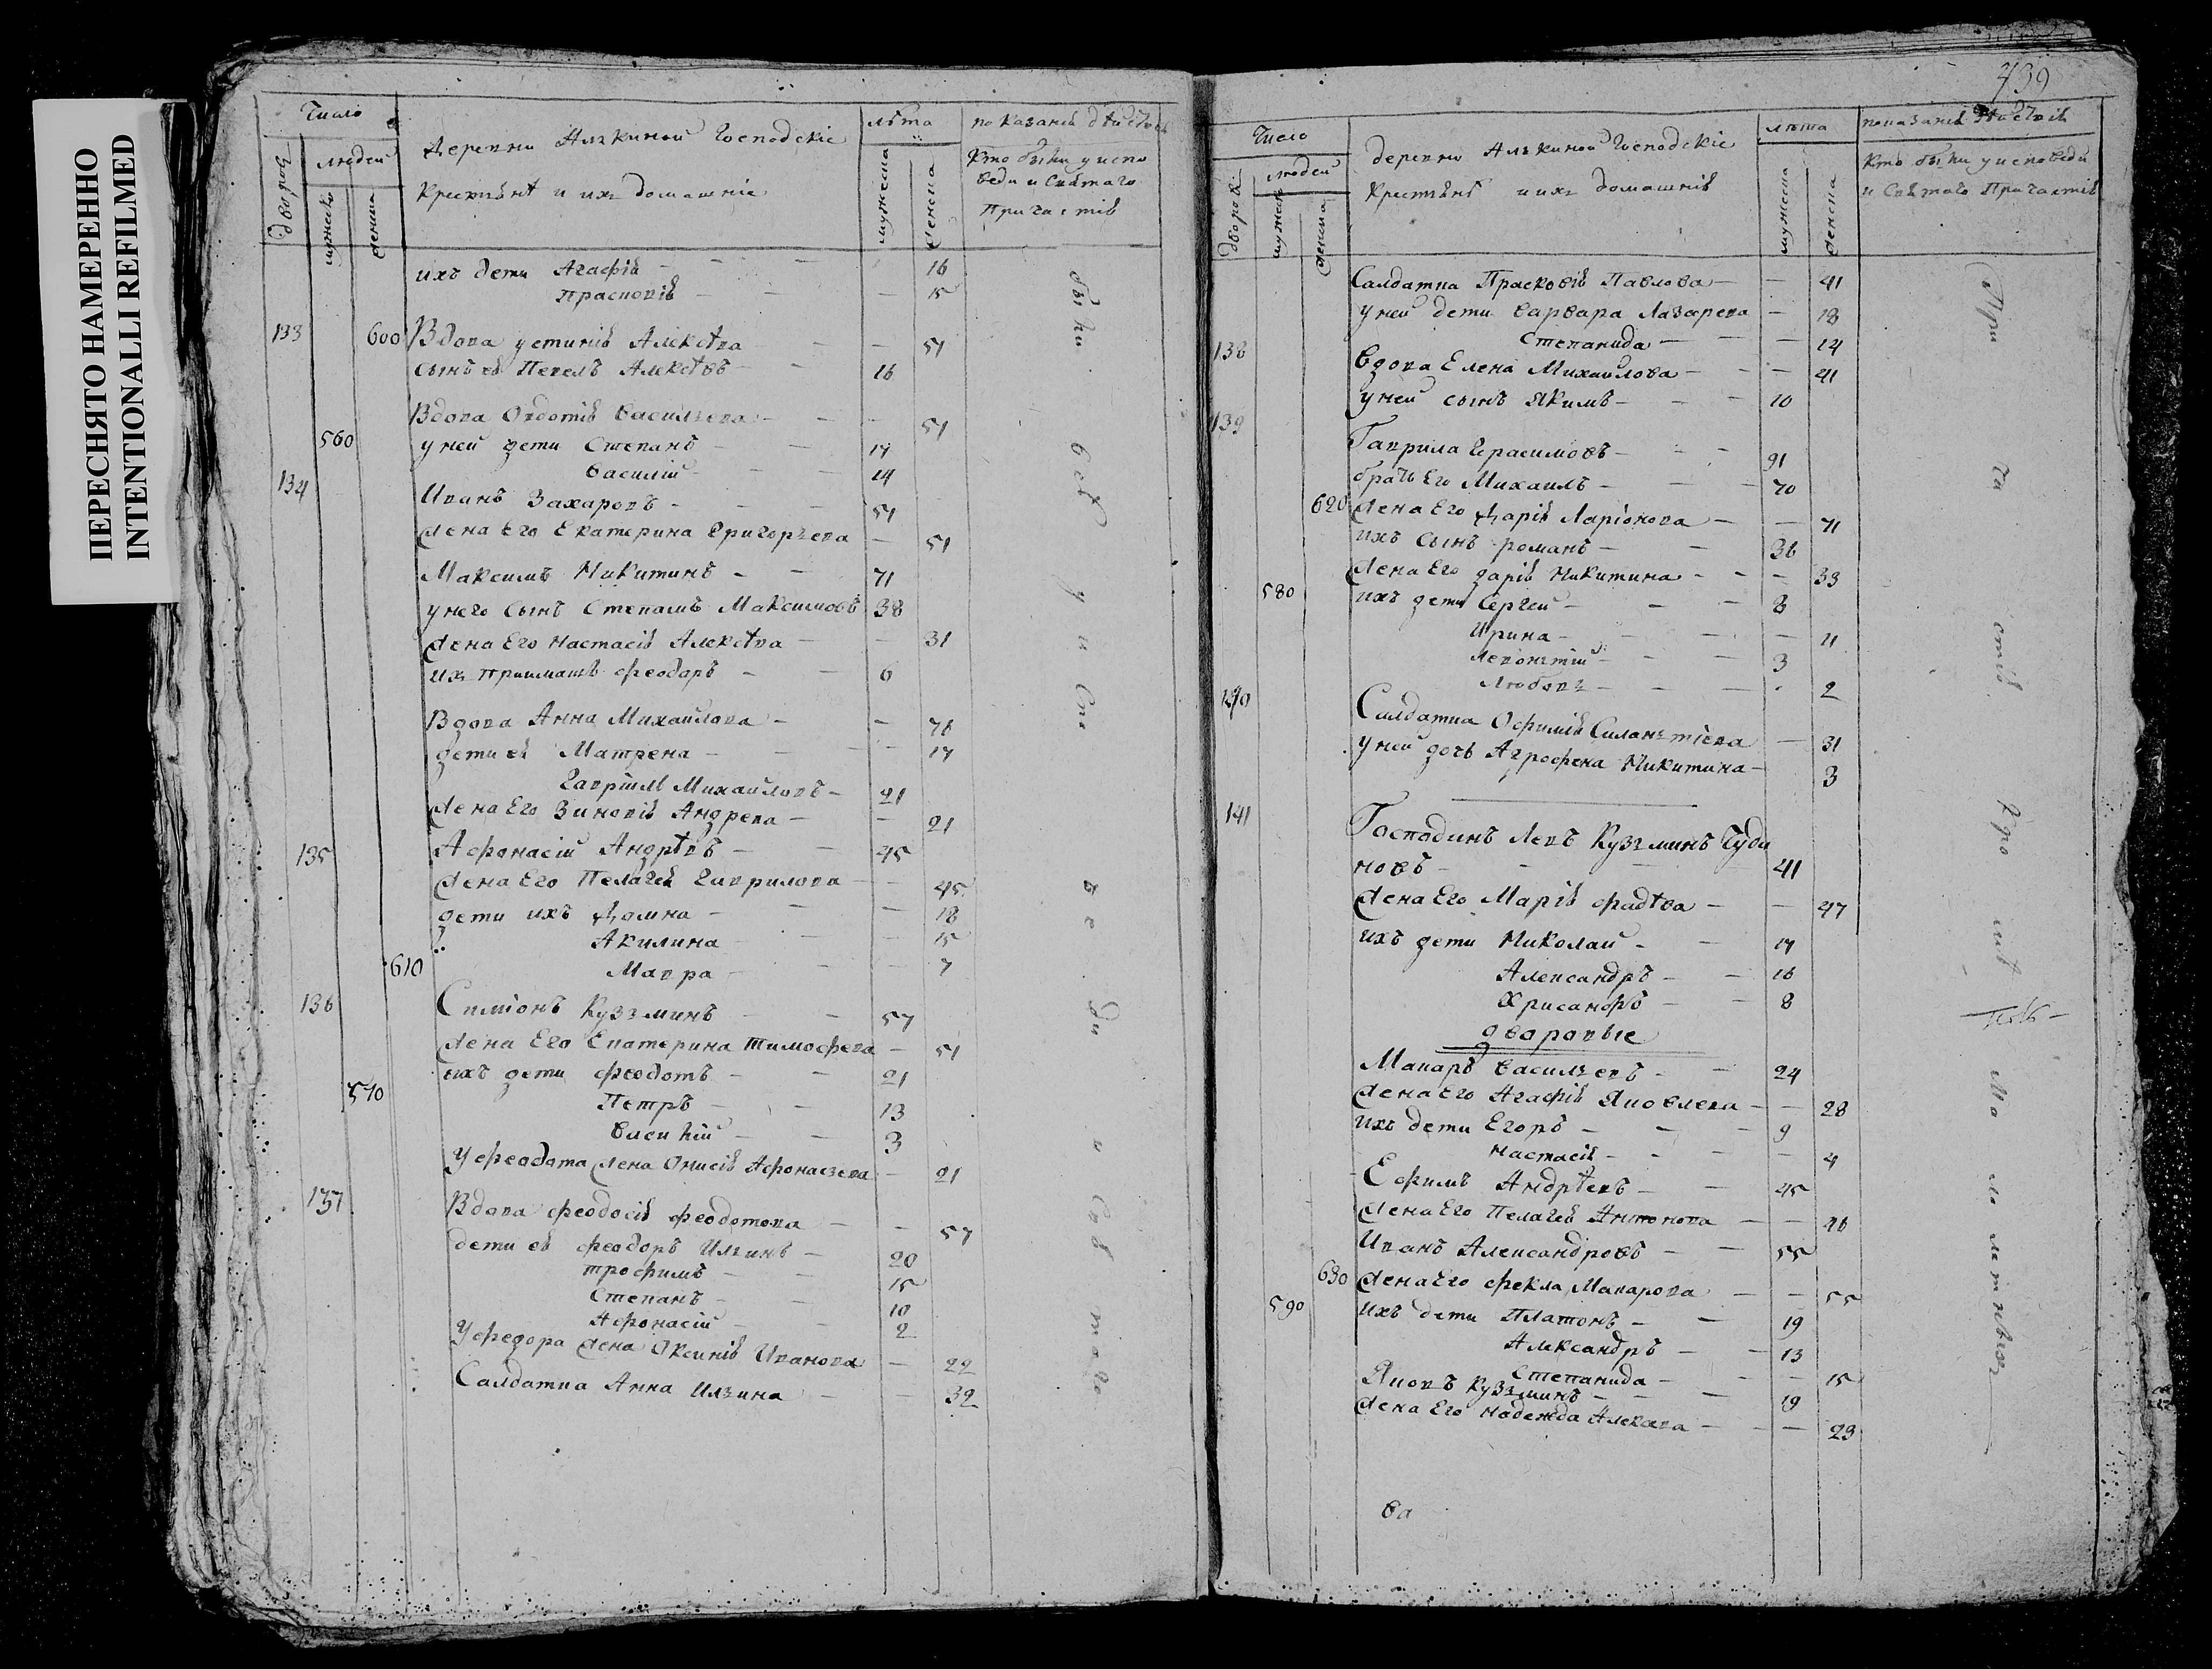 ПЕРЕСНЯТО НАМЕРЕННО
INTENTIONALLI REFILMED
Число
дворов
людей
мужеска
женска
Деревни Алькиной Господскіе
Крестьянѣ и ихъ домашніе
лѣта
мужеска
женска
показаніе дѣйствія
Кто были у испо
веди и Святаго
Причастія
ихъ дети Агафія — 16
Прасковія — 15
133 600 Вдова Устинія Алексѣева — 51
сынъ ея Павелъ Алексѣевъ — 16
Вдова Овдотія Васильева — 51
560 у ней дети Степанъ — 17
Василій — 14
134 Иванъ Захаровъ — 51
жена Его Екатерина Григорьева — 51
Максимъ Никитинъ — 71
у него Сынъ Степанъ Максимовъ 38
жена Его Настасія Алексѣева — 31
их приимашъ Феодоръ — 6
Вдова Анна Михайлова — 76
дети ея Матрена — 17
Гавріилъ Михайловъ — 21
жена Его Зиновія Андрева — 21
135 Афонасій Андрѣевъ — 45
жена Его Пелагея Гаврилова — 45
дети ихъ Домна — 18
Акилина — 15
610 Мавра — 7
136 Симіонъ Кузьминъ — 57
жена Его Екатерина Тимофева — 51
ихъ дети Феодотъ — 21
570 Петръ — 13
Василій — 3
У Феодота жена Онисія Афонасьева — 21
137 Вдова Феодосія Феодотова — 57
дети ея Феодоръ Ильинъ — 20
Трофимъ — 15
Степанъ — 10
Афонасій — 2
У Федора жена Оксинія Иванова — 22
Салдатка Анна Ильина — 32
были всѣ у испо веди и Свя таго
739
Число
дворовъ
людей
мужеск
женска
деревни Алькиной Господскіе
Крестьянѣ и ихъ домашнія
лѣта
мужеска
женска
показаніе дѣйствія
Кто были у исповеди
и Святаго Причастія
Салдатка Прасковія Павлова — 41
у ней дети Варвара Лазарева — 18
Степанида — 14
138 Вдова Елена Михайлова — 41
у ней сынъ Якимъ — 10
139 Гаврила Герасимовъ — 91
братъ Его Михаилъ — 70
620 жена Его Дарія Ларіонова — 71
ихъ Сынъ Романъ — 36
жена Его Дарія Никитина — 33
580 ихъ дети Сергей — 8
Ирина — 11
Леонтій — 3
Любовь — 2
140 Салдатка Офимія Силантіева — 31
у ней дочь Агрофена Никитина — 3
141 Господинъ Левъ Кузьминъ Чуди
новъ — 41
жена Его Марія Фадѣева — 47
ихъ дети Николай — 17
Александръ — 16
Хрисанфъ — 8
дворовые
Макаръ Васильевъ — 24
жена Его Агафія Яковлева — 28
ихъ дети Егоръ — 9
Настасія — 4
Ефимъ Андрѣевъ — 45
жена Его Пелагея Антонова — 46
Иванъ Александровъ — 55
630 жена Его Фекла Макарова — 55
590 ихъ дети Платонъ — 19
Александръ — 13
Степанида — 15
Яковъ Кузьминъ — 19
жена Его Надежда Алексева — 23
При ча стія кро мѣ ма ло летныхъ
ва